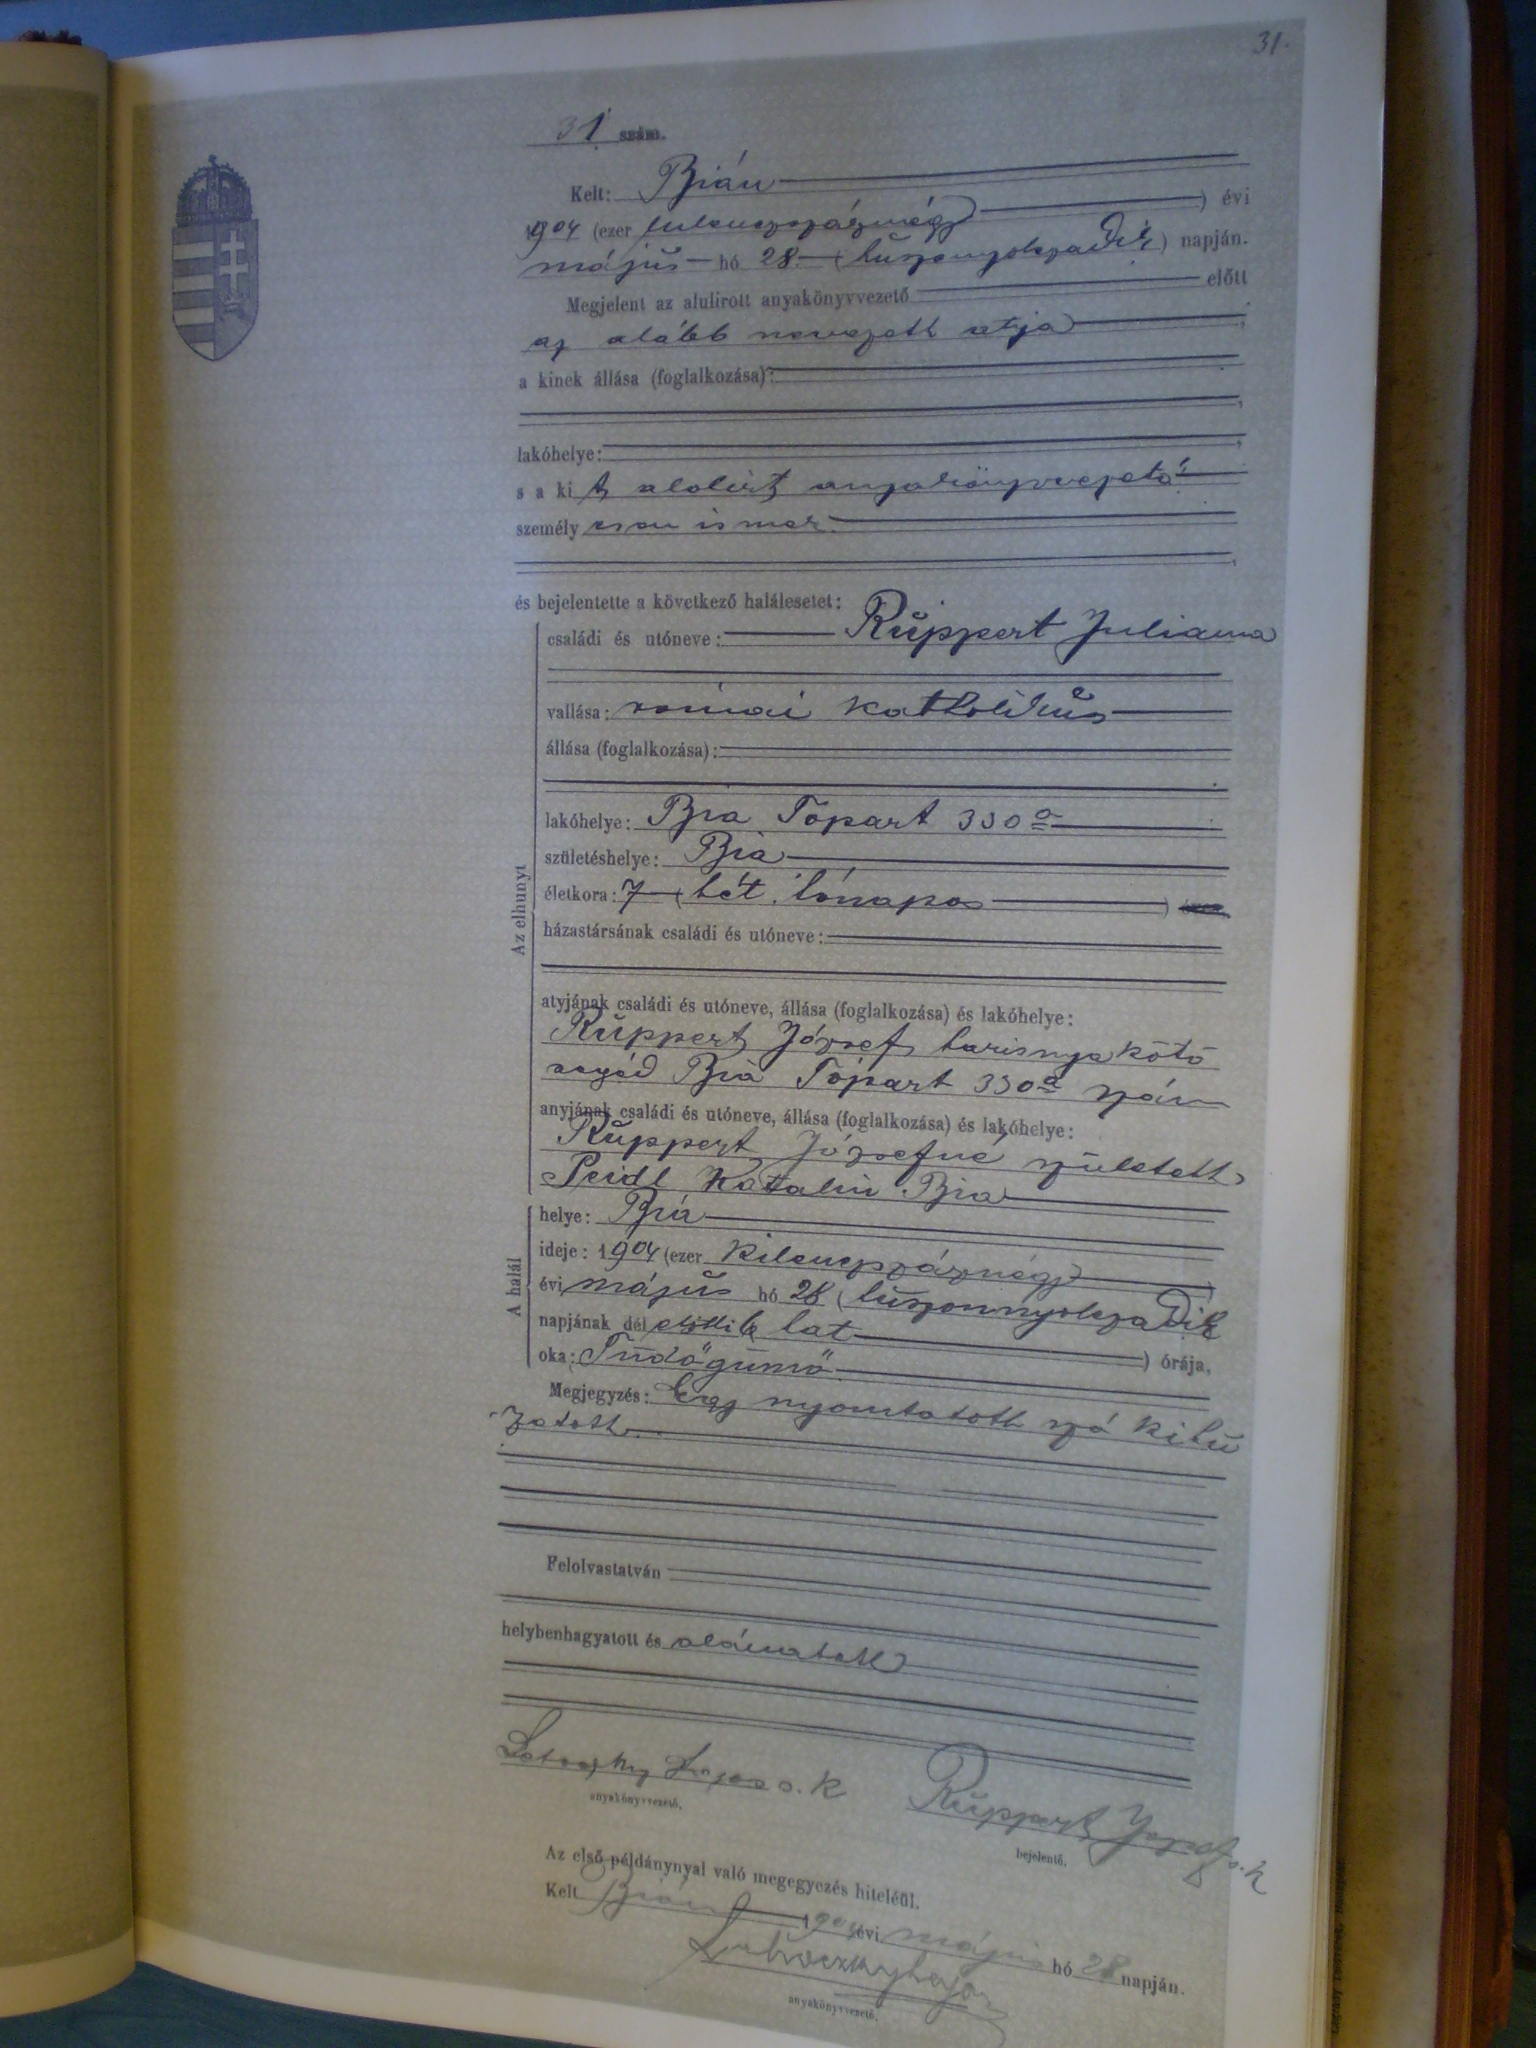 31.
31 szám.
Kelt: Bián
1904 (ezer kilenczszáznégy) évi
május hó 28 (huszonnyolczadik) napján.
Megjelent az alulirott anyakönyvvezető előtt
az alább nevezett atyja,
a kinek állása (foglalkozása):
lakóhelye:
s a kit alolirt anyakönyvvezető
személyesen ismer.
és bejelentette a következő halálesetet:
Az elhunyt
családi és utóneve: Ruppert Julianna
vallása: római katholikus
állása (foglalkozása):
lakóhelye: Bia Tópart 330 a
születéshelye: Bia
életkora: 7 (hét hónapos)
házastársának családi és utóneve:
atyjának családi és utóneve, állása (foglalkozása) és lakóhelye:
Ruppert József harisnyakötő
segéd Bia Tópart 330 a szám
anyjának családi és utóneve, állása (foglalkozása) és lakóhelye:
Ruppert Józsefné született
Peidl Katalin Bia
A halál
helye: Bia
ideje: 1904 (ezer kilenczszáznégy)
évi május hó 28 (huszonnyolczadik
napjának dél előtti 6 hat) órája,
oka: Tüdőgümő
Megjegyzés: Egy nyomtatott szó kihú
zatott.
Felolvastatván
helybenhagyatott és aláíratott
Lajos s. k
anyakönyvvezető.
Ruppert József s. k
bejelentő.
Az első példánynyal való megegyezés hiteléül.
Kelt Bián 1904 évi május hó 28 napján.
Lajos
anyakönyvvezető.